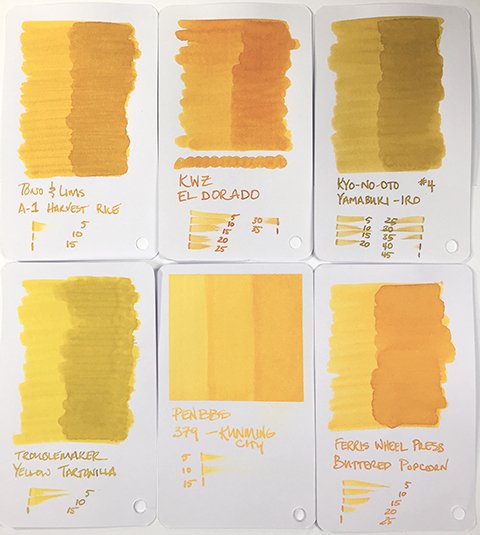 TONO & LIMS
A-1 HARVEST RICE
5
10
15
KWZ
EL DORADO
5 30
10 35
15
20
25
KYO-NO-OTO #4
YAMABUKI-IRO
5 25
10 30
15 35
20 40
45
TROUBLEMAKER
YELLOW TARTANILLA
5
10
15
PENBBS
379 - KUNMING
CITY
5
10
15
FERRIS WHEEL PRESS
BUTTERED POPCORN
5
10
15
20
25